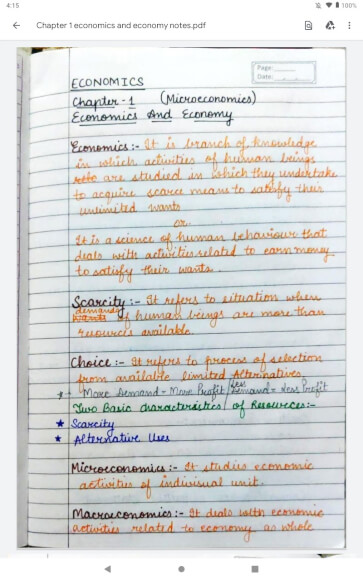 4:15
100%
Chapter 1 economics and economy notes.pdf
Page:
Date:
ECONOMICS
Chapter - 1 (Microeconomics)
Economics And Economy
Economics :- It is branch of knowledge
in which activities of human beings
are studied in which they undertake
to acquire scarce means to satisfy their
unlimited wants
or
It is a science of human behaviour that
deals with activities related to earn money
to satisfy their wants.
Scarcity :- It refers to situation when
demands
wants of human beings are more than
resources available.
Choice :- It refers to process of selection
from available limited Alternatives.
More Demand = More Profit / less Demand = less Profit
Two Basic characteristics of Resources :-
★ Scarcity
★ Alternative Uses
Microeconomics :- It studies economic
activities of indivisual unit.
Macroeconomics :- It deals with economic
activities related to economy as whole